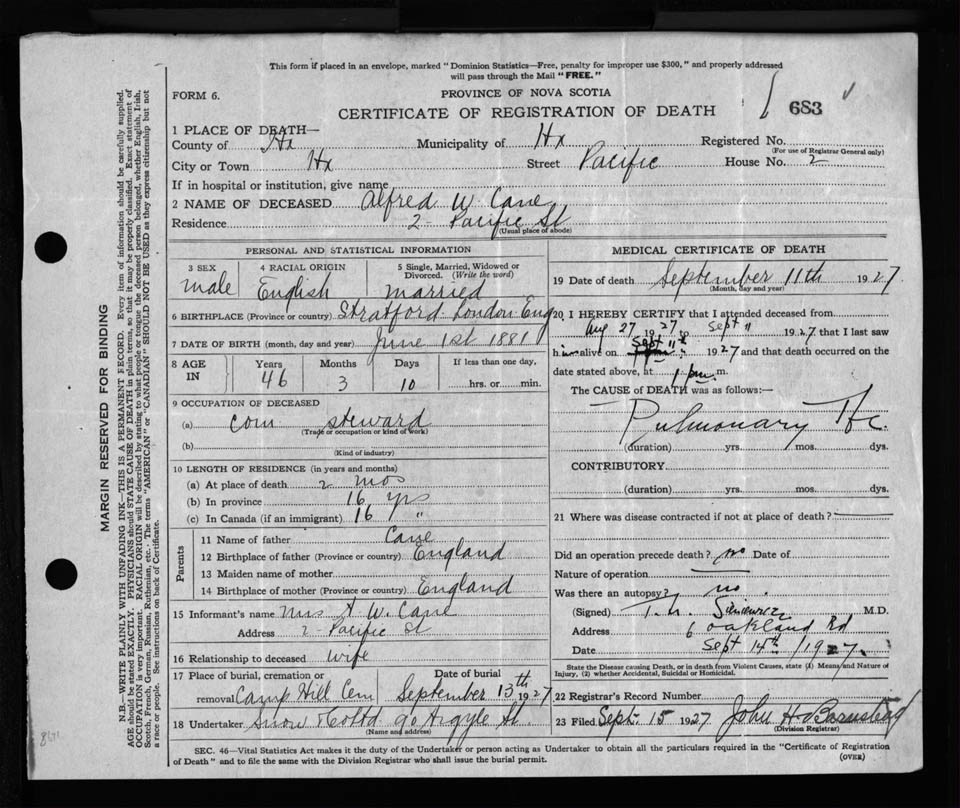 This form if placed in an envelope, marked "Dominion Statistics—Free, penalty for improper use $300," and properly addressed
will pass through the Mail "FREE."
FORM 6.
PROVINCE OF NOVA SCOTIA
CERTIFICATE OF REGISTRATION OF DEATH
683
1 PLACE OF DEATH—
County of Hx Municipality of Hx Registered No.
(For use of Registrar General only)
City or Town Hx Street Pacific House No. 2
If in hospital or institution, give name
2 NAME OF DECEASED Alfred W. Cane
Residence 2 - Pacific St
(Usual place of abode)
PERSONAL AND STATISTICAL INFORMATION
3 SEX male
4 RACIAL ORIGIN English
5 Single, Married, Widowed or
Divorced. (Write the word)
married
6 BIRTHPLACE (Province or country) Stratford - London - Eng
7 DATE OF BIRTH (month, day and year) June 1st 1881
8 AGE IN
Years 46
Months 3
Days 10
If less than one day,
hrs. or min.
9 OCCUPATION OF DECEASED
(a) com steward
(Trade or occupation or kind of work)
(b)
(Kind of industry)
10 LENGTH OF RESIDENCE (in years and months)
(a) At place of death 2 mos
(b) In province 16 yrs
(c) In Canada (if an immigrant) 16 "
Parents
11 Name of father Cane
12 Birthplace of father (Province or country) England
13 Maiden name of mother
14 Birthplace of mother (Province or country) England
15 Informant's name Mrs A. W. Cane
Address 2 - Pacific St
16 Relationship to deceased wife
17 Place of burial, cremation or
removal Camp Hill Cem
Date of burial
September 13th 1927
18 Undertaker Snow & Co Ltd 90 Argyle St.
(Name and address)
MEDICAL CERTIFICATE OF DEATH
19 Date of death September 11th 1927
(Month, day and year)
20 I HEREBY CERTIFY that I attended deceased from
Aug 27 1927 to Sept 11 1927 that I last saw
him alive on Sept 11th 1927 and that death occurred on the
date stated above, at 1 pm m.
The CAUSE of DEATH was as follows:—
Pulmonary Tbc.
(duration) yrs. mos. dys.
CONTRIBUTORY
(duration) yrs. mos. dys.
21 Where was disease contracted if not at place of death?
Did an operation precede death? no Date of
Nature of operation
Was there an autopsy? no.
(Signed) M.D.
Address 6 Oakland Rd
Date Sept 14th 1927.
State the Disease causing Death, or in death from Violent Causes, state (1) Means and Nature of
Injury, (2) whether Accidental, Suicidal or Homicidal.
22 Registrar's Record Number
23 Filed Sept. 15 1927 John H. Barnstead
(Division Registrar)
SEC. 46—Vital Statistics Act makes it the duty of the Undertaker or person acting as Undertaker to obtain all the particulars required in the "Certificate of Registration
of Death" and to file the same with the Division Registrar who shall issue the burial permit.
(OVER)
MARGIN RESERVED FOR BINDING
N.B.—WRITE PLAINLY WITH UNFADING INK—THIS IS A PERMANENT RECORD. Every item of information should be carefully supplied.
AGE should be stated EXACTLY. PHYSICIANS should STATE CAUSE OF DEATH in plain terms, so that it may be properly classified. Exact statement of
OCCUPATION is very important. RACIAL ORIGIN will be described by stating to what people or tongue the deceased person belonged, whether English, Irish,
Scotch, French, German, Russian, Ruthenian, etc. The terms "AMERICAN" or "CANADIAN" SHOULD NOT BE USED as they express citizenship but not
a race or people. See instructions on back of Certificate.